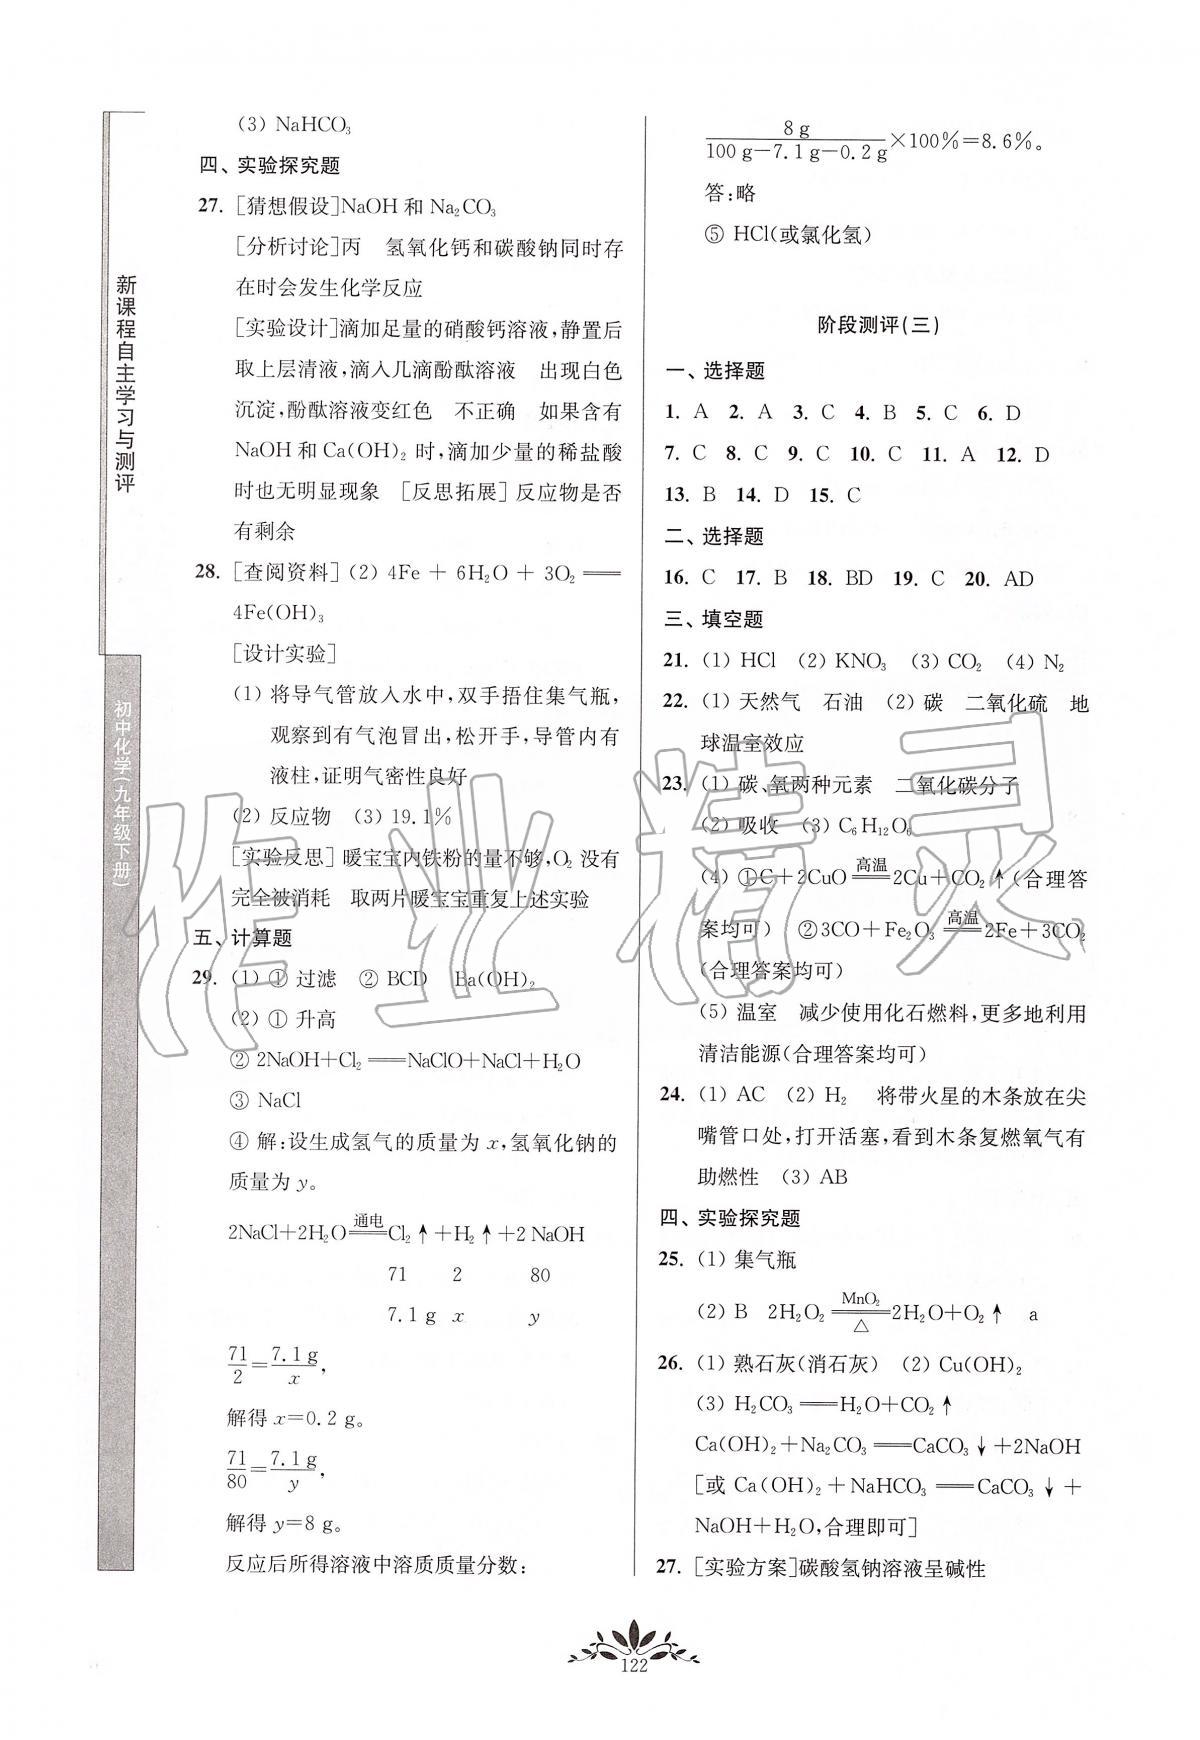 新课程自主学习与测评
初中化学(九年级下册)
(3) NaHCO₃
四、实验探究题
27. [猜想假设]NaOH 和 Na₂CO₃
[分析讨论]丙 氢氧化钙和碳酸钠同时存
在时会发生化学反应
[实验设计]滴加足量的硝酸钙溶液,静置后
取上层清液,滴入几滴酚酞溶液 出现白色
沉淀,酚酞溶液变红色 不正确 如果含有
NaOH 和 Ca(OH)₂ 时,滴加少量的稀盐酸
时也无明显现象 [反思拓展] 反应物是否
有剩余
28. [查阅资料] (2) 4Fe + 6H₂O + 3O₂ ══
4Fe(OH)₃
[设计实验]
(1) 将导气管放入水中,双手捂住集气瓶,
观察到有气泡冒出,松开手,导管内有
液柱,证明气密性良好
(2) 反应物 (3) 19.1%
[实验反思] 暖宝宝内铁粉的量不够,O₂ 没有
完全被消耗 取两片暖宝宝重复上述实验
五、计算题
29. (1) ① 过滤 ② BCD Ba(OH)₂
(2) ① 升高
② 2NaOH+Cl₂══NaClO+NaCl+H₂O
③ NaCl
④ 解:设生成氢气的质量为 x,氢氧化钠的
质量为 y。
2NaCl+2H₂O 通电══ Cl₂↑+H₂↑+2 NaOH
71 2 80
7.1 g x y
71/2=7.1 g/x,
解得 x=0.2 g。
71/80=7.1 g/y,
解得 y=8 g。
反应后所得溶液中溶质质量分数:
8 g/(100 g−7.1 g−0.2 g)×100%=8.6%。
答:略
⑤ HCl(或氯化氢)
阶段测评(三)
一、选择题
1. A 2. A 3. C 4. B 5. C 6. D
7. C 8. C 9. C 10. C 11. A 12. D
13. B 14. D 15. C
二、选择题
16. C 17. B 18. BD 19. C 20. AD
三、填空题
21. (1) HCl (2) KNO₃ (3) CO₂ (4) N₂
22. (1) 天然气 石油 (2) 碳 二氧化硫 地
球温室效应
23. (1) 碳、氧两种元素 二氧化碳分子
(2) 吸收 (3) C₆H₁₂O₆
(4) ①C+2CuO 高温══ 2Cu+CO₂↑(合理答
案均可) ②3CO+Fe₂O₃ 高温══ 2Fe+3CO₂
(合理答案均可)
(5) 温室 减少使用化石燃料,更多地利用
清洁能源(合理答案均可)
24. (1) AC (2) H₂ 将带火星的木条放在尖
嘴管口处,打开活塞,看到木条复燃氧气有
助燃性 (3) AB
四、实验探究题
25. (1) 集气瓶
(2) B 2H₂O₂ MnO₂══△ 2H₂O+O₂↑ a
26. (1) 熟石灰(消石灰) (2) Cu(OH)₂
(3) H₂CO₃══H₂O+CO₂↑
Ca(OH)₂+Na₂CO₃══CaCO₃↓+2NaOH
[或 Ca(OH)₂ + NaHCO₃══CaCO₃↓ +
NaOH+H₂O,合理即可]
27. [实验方案]碳酸氢钠溶液呈碱性
122
作业精灵